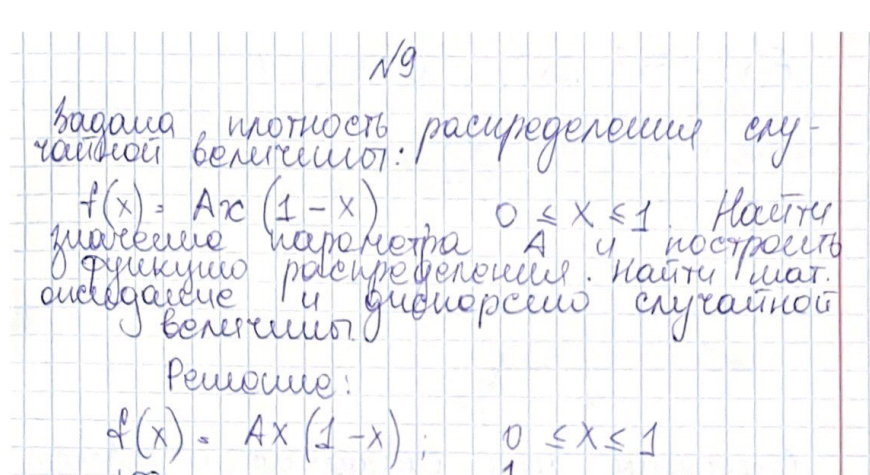 №9
Задана плотность распределения слу-
чайной величины:
f(x) = Ax (1 - x)   0 ≤ x ≤ 1. Найти
значение параметра A и построить
функцию распределения. Найти мат.
ожидание и дисперсию случайной
величины.
Решение:
f(x) = Ax (1 - x);   0 ≤ x ≤ 1